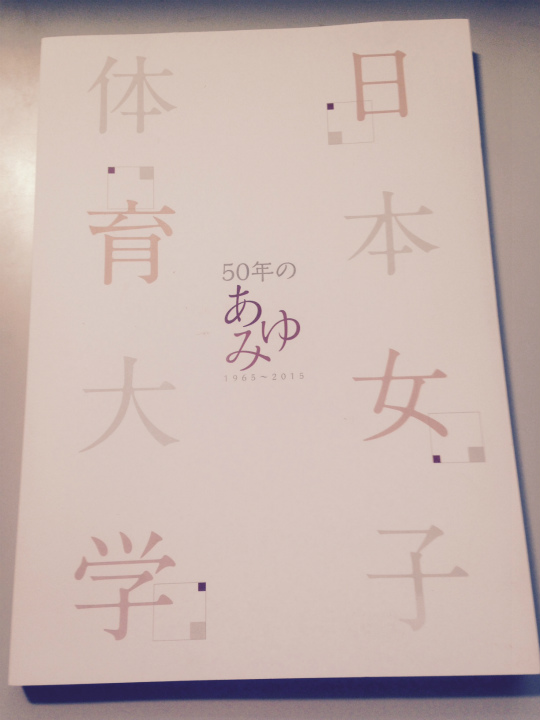 日本女子
体育大学
50年の
あゆみ
1965~2015